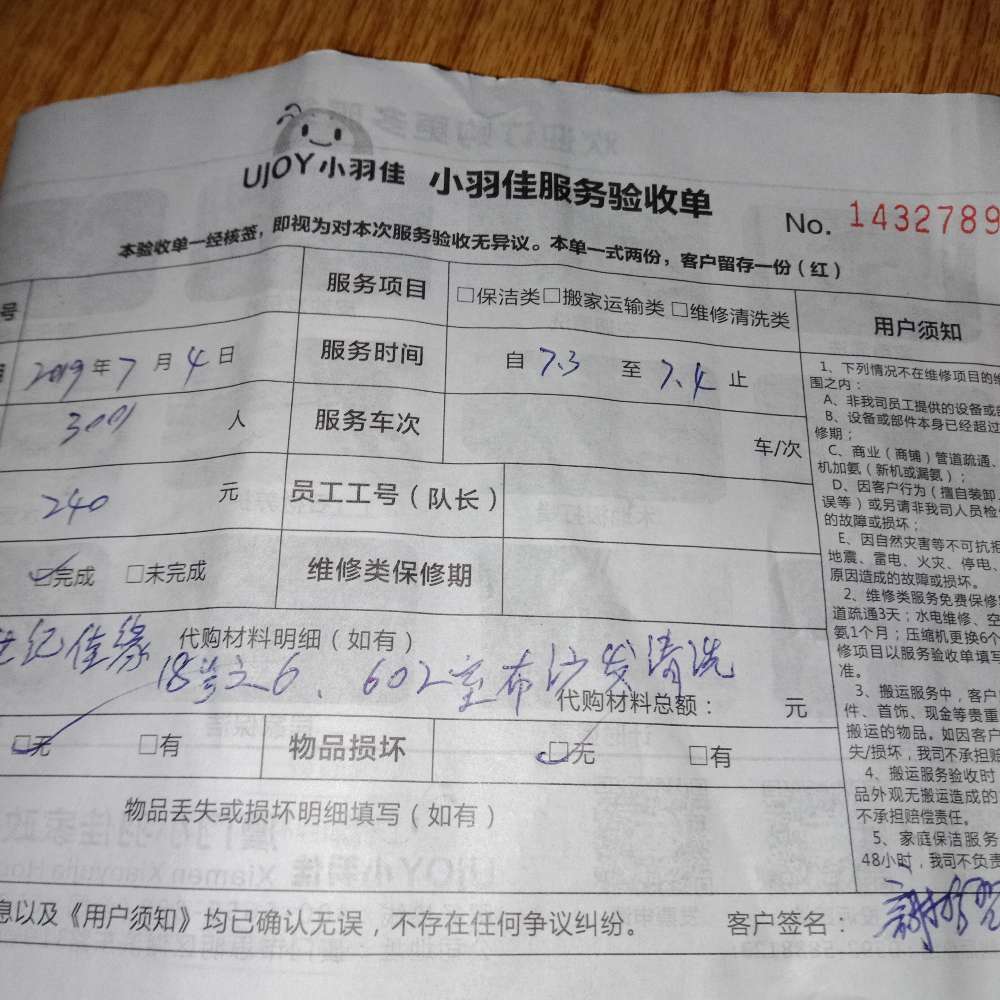 UJOY小羽佳 小羽佳服务验收单 No. 1432789
本验收单一经核签，即视为对本次服务验收无异议。本单一式两份，客户留存一份（红）
号 服务项目 □保洁类□搬家运输类 □维修清洗类
2019年7月4日 服务时间 自 7.3 至 7.4 止
人 服务车次 车/次
240 元 员工工号（队长）
□完成 □未完成 维修类保修期
世纪佳缘 代购材料明细（如有）
18号之6、602室布沙发清洗
代购材料总额： 元
□无 □有 物品损坏 □无 □有
物品丢失或损坏明细填写（如有）
息以及《用户须知》均已确认无误，不存在任何争议纠纷。 客户签名：
用户须知
1、下列情况不在维修项目的维
围之内：
A、非我司员工提供的设备或
B、设备或部件本身已经超过
修期；
C、商业（商铺）管道疏通、
机加氨（新机或漏氨）；
D、因客户行为（擅自装卸
误等）或另请非我司人员检
的故障或损坏；
E、因自然灾害等不可抗
地震、雷电、火灾、停电、
原因造成的故障或损坏。
2、维修类服务免费保修
道疏通3天；水电维修、空
氨1个月；压缩机更换6个
修项目以服务验收单填写
准。
3、搬运服务中，客户
件、首饰、现金等贵重
搬运的物品。如因客户
失/损坏，我司不承担
4、搬运服务验收时
品外观无搬运造成的
不承担赔偿责任。
5、家庭保洁服务
48小时，我司不负责